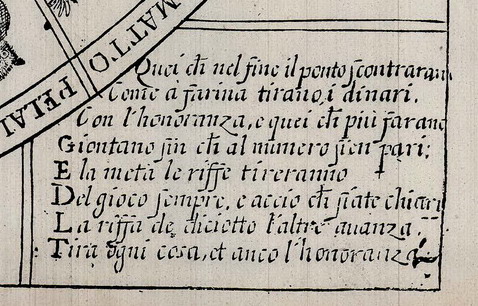 MATTO
PELAI
Quei ch nel fine il ponto scontraran
Come a farina tirano, i dinari.
Con l'honoranza, e quei ch più farano
Giontano sin ch al numero sien pari;
E la metà le riffe tireranno
Del gioco sempre, e acciò ch siate chiari
La riffa de diciotto l'altre auanza,
Tira ogni cosa, et anco l'honoranza